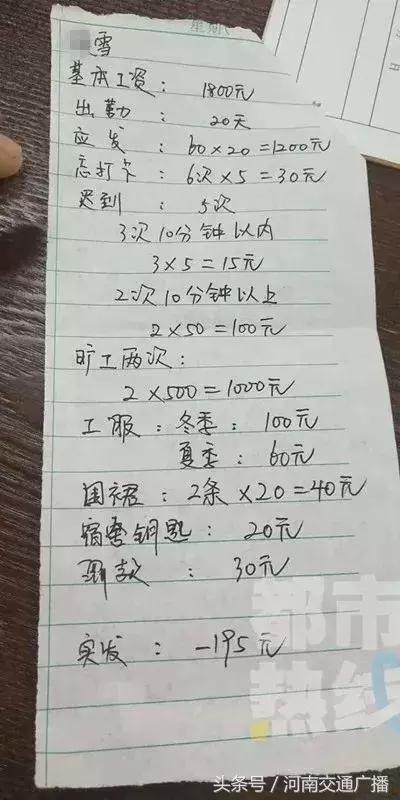 星期
雪
基本工资： 1800元
出勤： 20天
应发： 60×20=1200元
忘打卡： 6次×5=30元
迟到： 5次
3次10分钟以内
3×5=15元
2次10分钟以上
2×50=100元
旷工两次：
2×500=1000元
工服：冬季： 100元
夏季： 60元
围裙： 2条×20=40元
宿舍钥匙： 20元
罚款： 30元
实发： -195元
都市
热线
头条号／河南交通广播